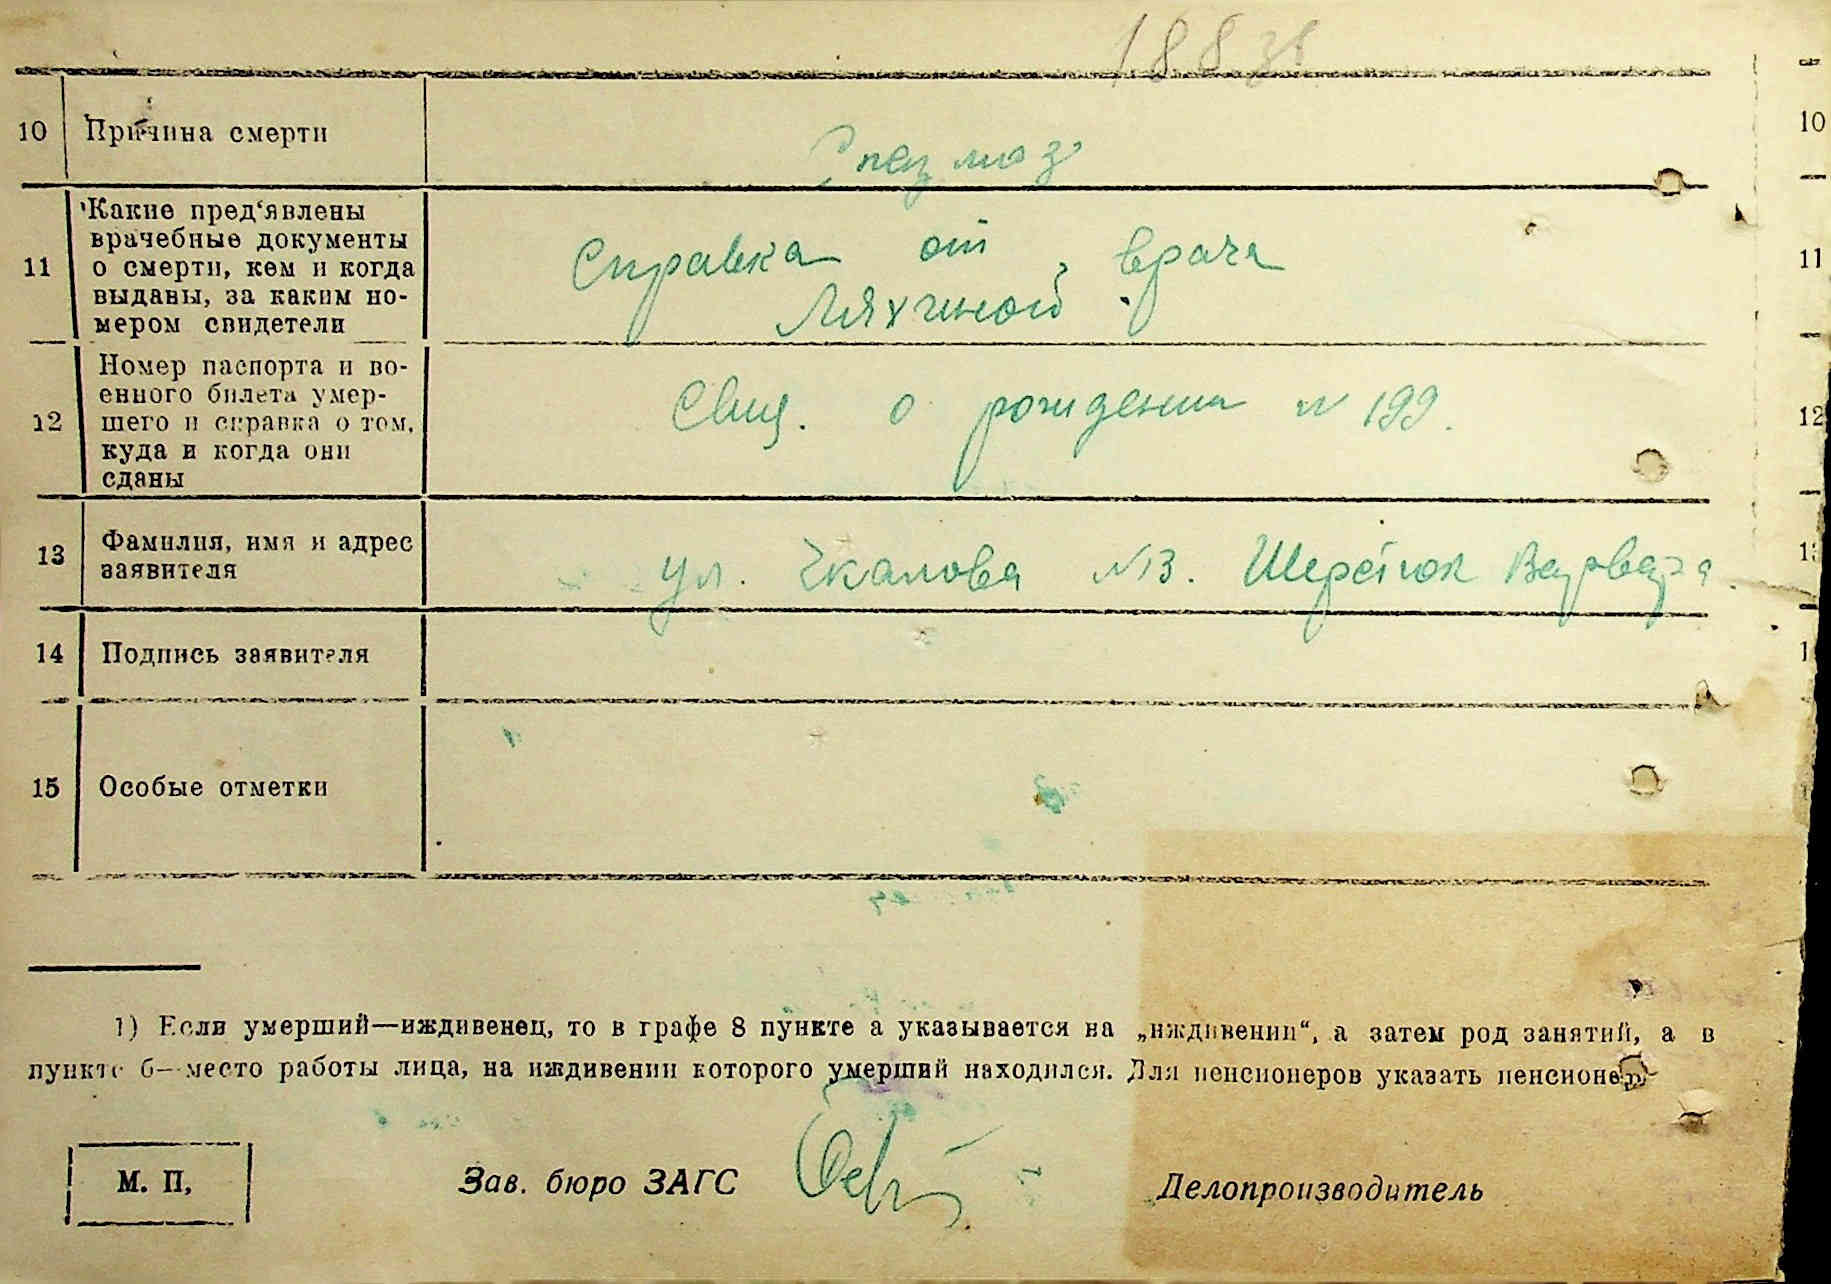 18 8 38
10 Причина смерти
Спазмоз
10
11 Какие пред‘явлены врачебные документы о смерти, кем и когда выданы, за каким но-мером свидетели
Справка от врача
Ляхчиной
11
12 Номер паспорта и во-енного билета умер-шего и справка о том, куда и когда они сданы
Свид. о рождении N 199.
12
13 Фамилия, имя и адрес заявителя
ул. Чкалова N13. Шеретюк Варвара
14 Подпись заявителя
15 Особые отметки
1) Если умерший—иждивенец, то в графе 8 пункте а указывается на „иждивении“, а затем род занятий, а в
пункте б—место работы лица, на иждивении которого умерший находился. Для пенсионеров указать пенсионер
М. П,
Зав. бюро ЗАГС
Делопроизводитель